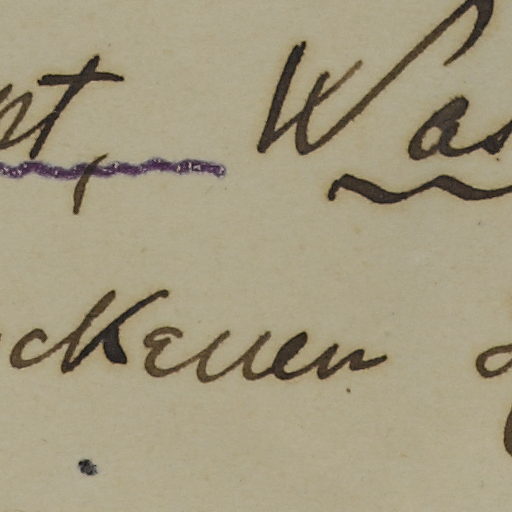 nt, Was
ckenen